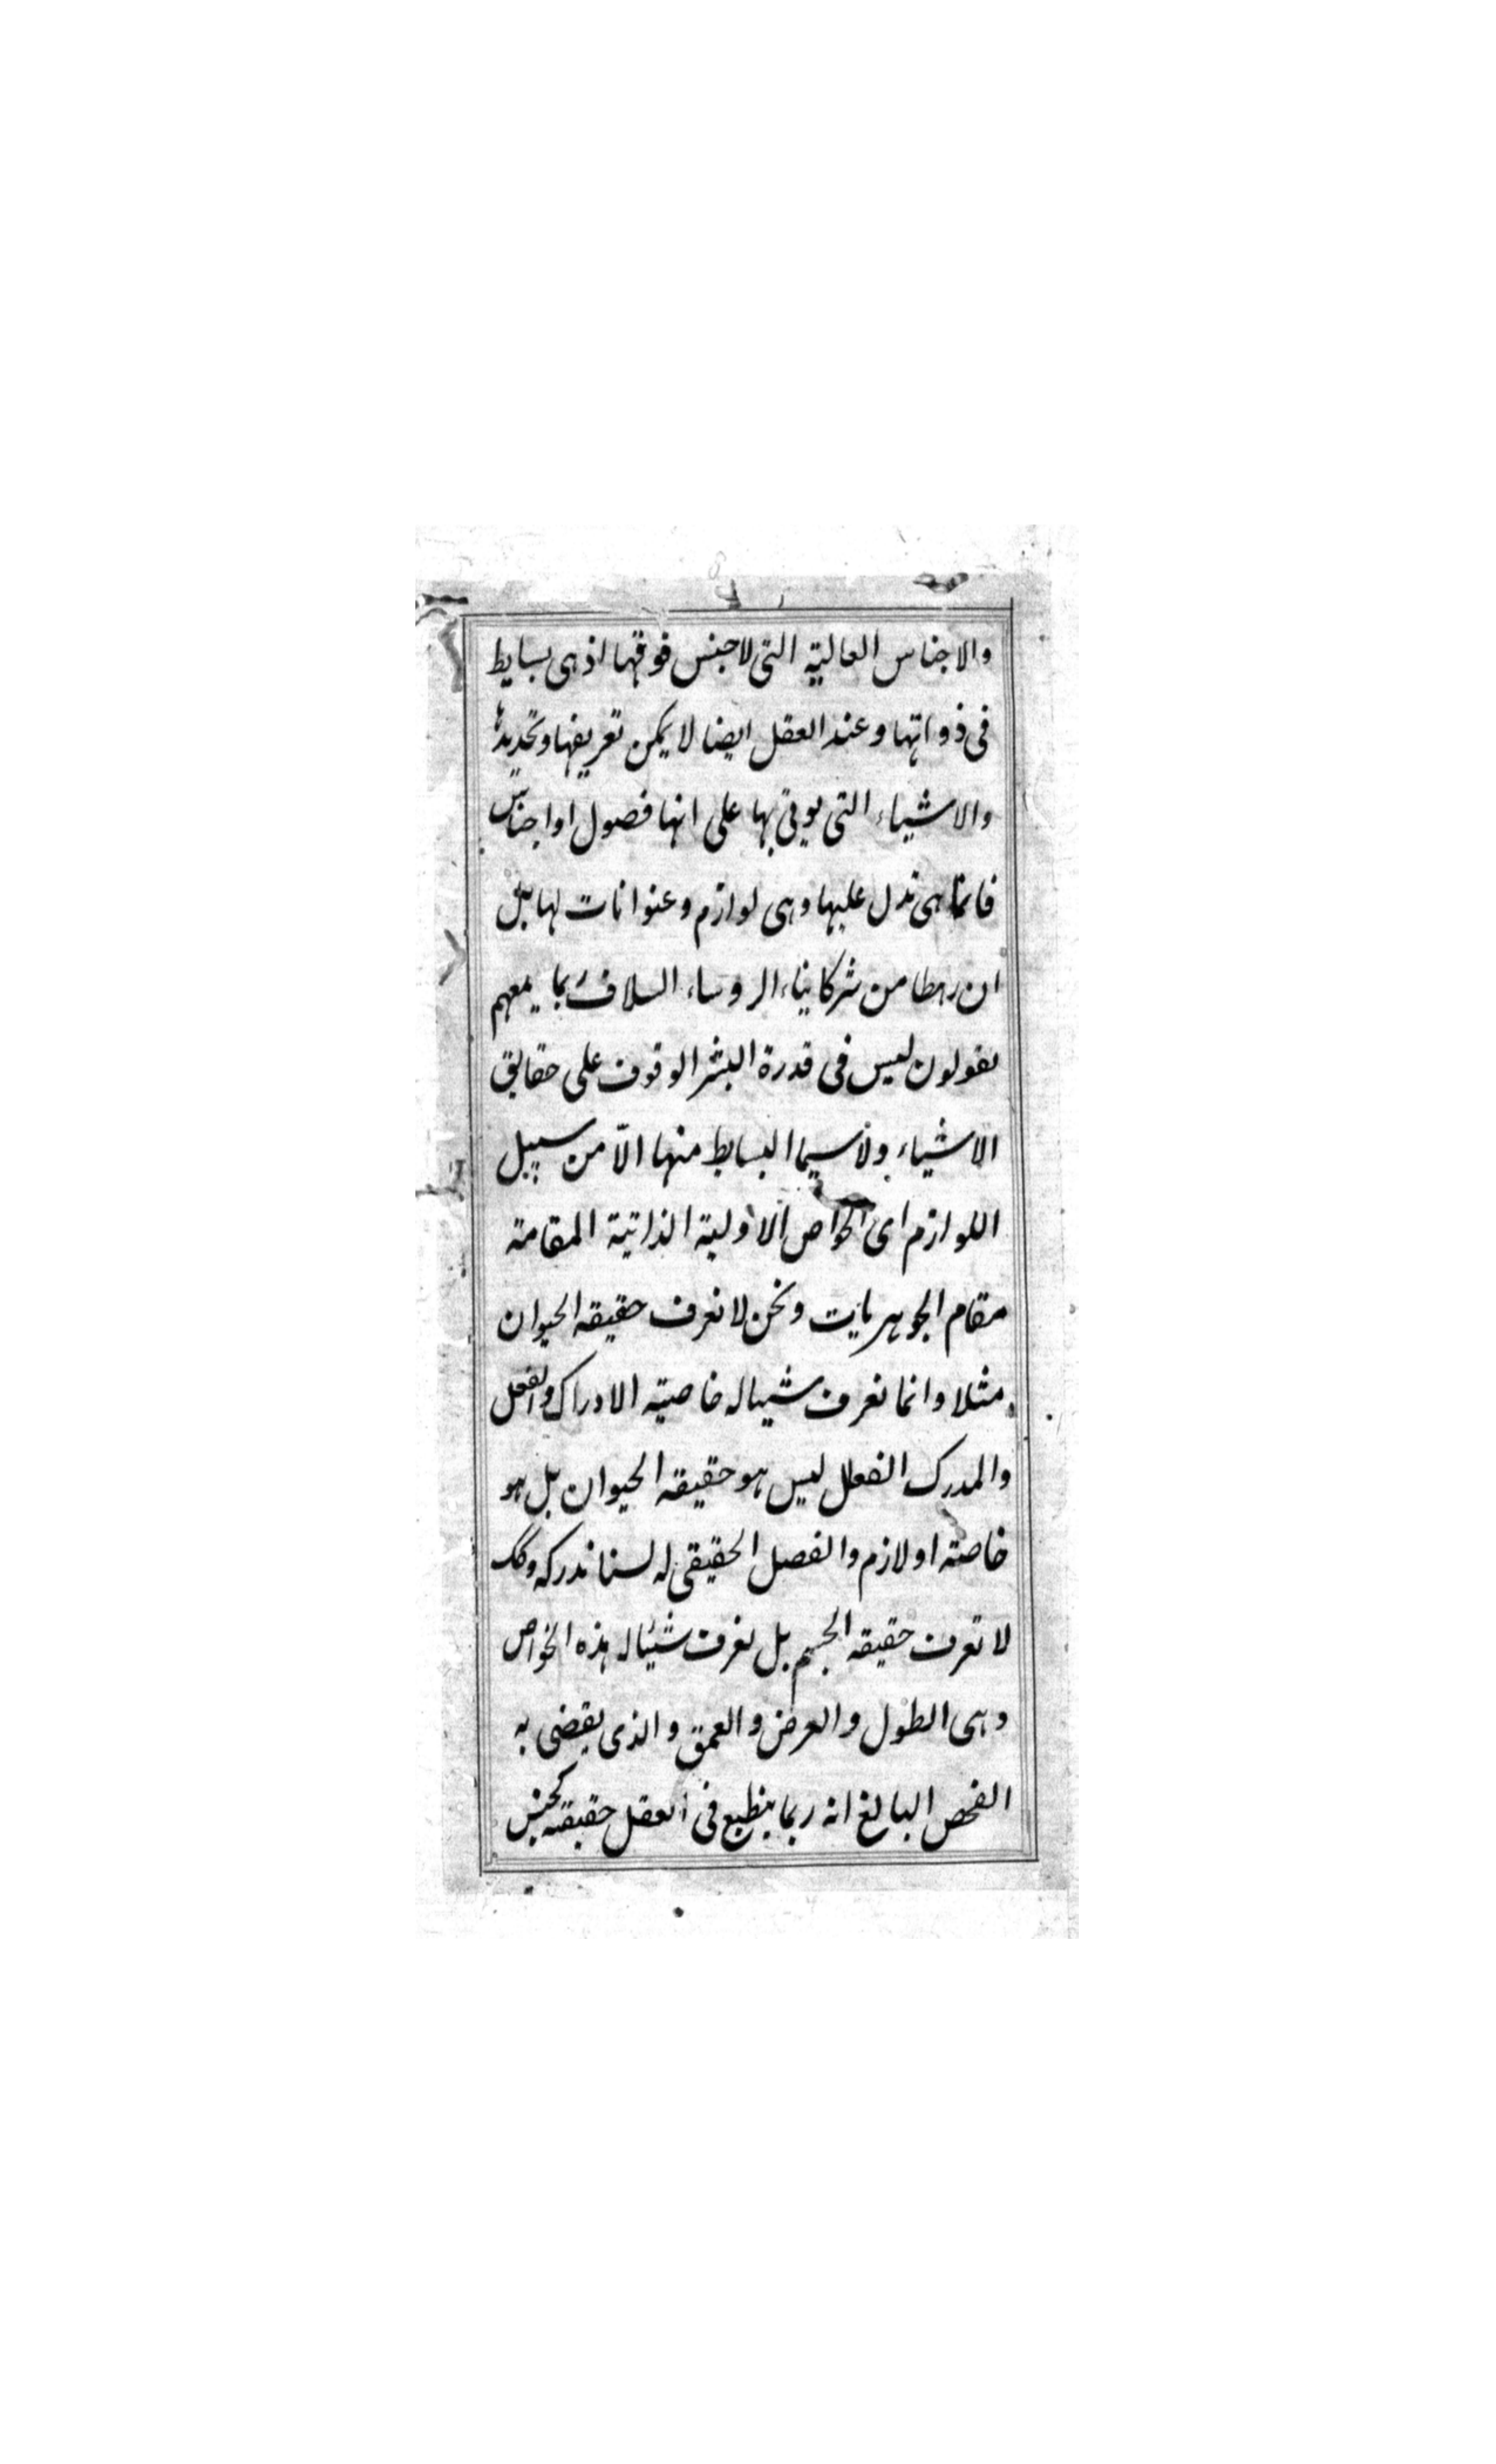 والاجناس العالية التى لاجنس فوقها اذ هى بسايط
فى ذواتها وعند العقل ايضا لا يمكن تعريفها وتحديدها
والاشياء التى يوتى بها على انها فصول او اجناس
فانما هى تدل عليها وهى لوازم وعنوانات لها بل
ان رهطا من شركايناء الروساء السلاف ربما
يقولون ليس فى قدرة البشر الوقوف على حقايق
الاشياء ولاسيما البسايط منها الّا من سبيل
اللوازم اى الخواص الاولية الذاتية المقامة
مقام الجوهريات ونحن لا نعرف حقيقه الحيوان
مثلا وانما نعرف شيبا له خاصيته الادراك والفعل
والمدرك الفعال ليس هو حقيقه الحيوان بل هو
خاصته او لازم والفصل الحقيقى له لسنا ندركه وكك
لا نعرف حقيقه الجسم بل نعرف شيئا له هذه الخواص
وهى الطول والعرض والعمق والذى يقضى به
الفحص البالغ انه ربما ينطبع فى العقل حقيقه